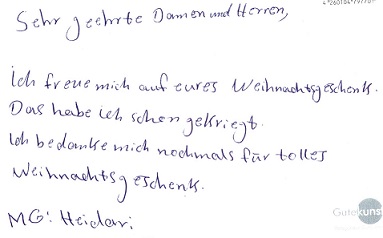 Sehr geehrte Damen und Herren,
Ich freue mich auf eures Weihnachtsgeschenk.
Das habe ich schon gekriegt.
Ich bedanke mich nochmals für tolles
Weihnachtsgeschenk.
MG: Heidari
Gutekunst